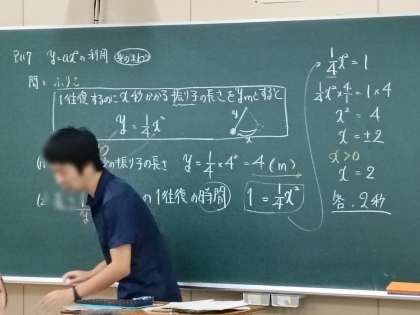 P117 y=ax²の利用
問：ふりこ
1往復するのにx秒かかる振り子の長さをymとすると
y=1/4x²
y
の振り子の長さ y=1/4×4²=4(m)
の1往復の時間 1=1/4x²
1/4x²=1
1/4x²×4/1=1×4
x²=4
x=±2
x>0
x=2
答. 2秒